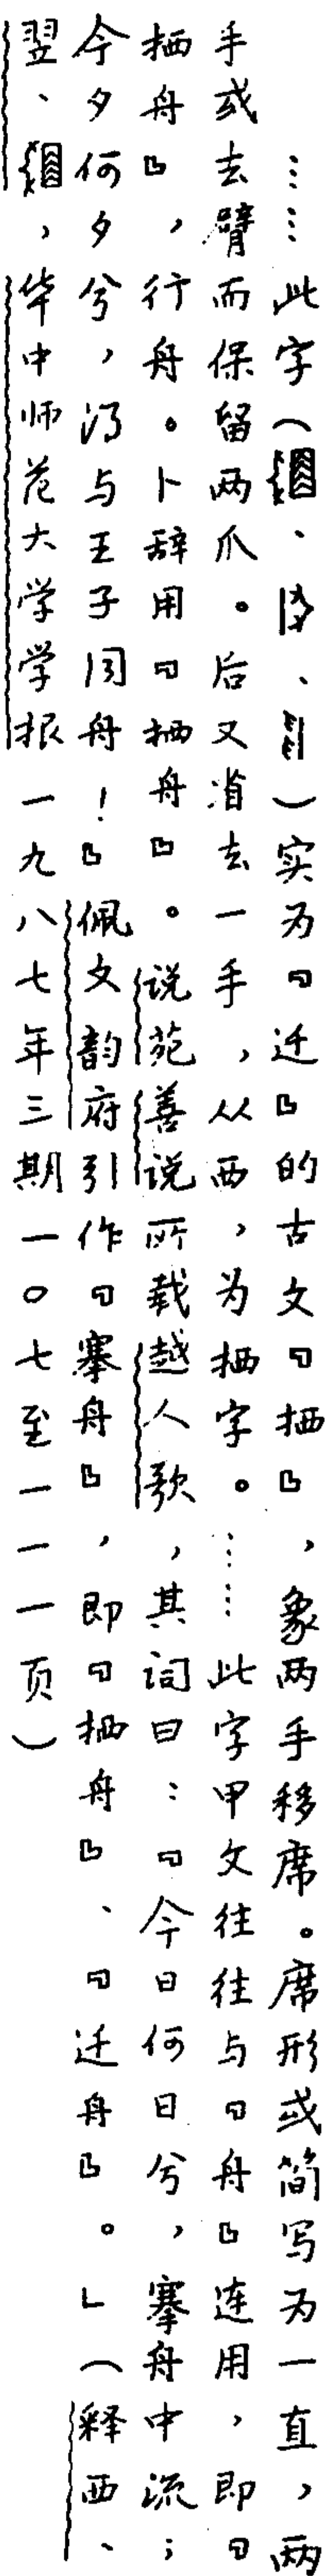 ……此字(、、)实为『迁』的古文『拪』,象两手移席。席形或简写为一直,两
手或去臂而保留两爪。后又省去一手,从西,为拪字。……此字甲文往往与『舟』连用,即『
拪舟』,行舟。卜辞用『拪舟』。说苑善说所载越人歌,其词曰:『今日何日兮,搴舟中流;
今夕何夕兮,得与王子同舟!』佩文韵府引作『搴舟』,即『拪舟』、『迁舟』。」(释西、
翌、,华中师范大学学报一九八七年三期一〇七至一一一页)